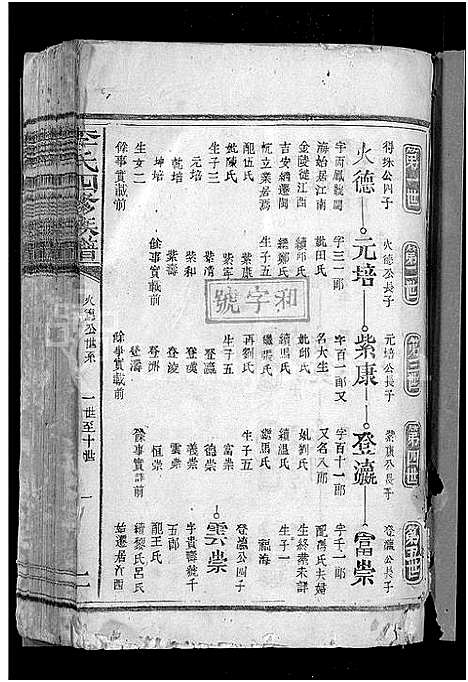 第一世
得珠公四子
火德
海始居江南
金陵徙江西
吉安
配伍氏
妣陳氏
生子三
元培
乾培
坤培
生女二
餘事實載前
第二世
火德公長子
元培
字三一郎
妣田氏
續邱氏
續鄭氏
生子五
紫康
紫清
紫和
紫濤
餘事實載前
第三世
元培公長子
紫康
字百一郎又
名大生
妣邱氏
續馬氏
繼張氏
再劉氏
生子五
登瀛
登凌
登洲
登濤
餘事實載前
第四世
紫康公長子
登瀛
字百十一郎
又名八郎
妣劉氏
續溫氏
續馬氏
生子五
富崇
德崇
雲崇
義崇
恒崇
餘事實詳前
第五世
登瀛公長子
富崇
字千一郎
生終葉未詳
生子一
福海
雲崇
登瀛公四子
字貴壽號千
五郎
配王氏
續黎氏呂氏
和字號
李氏四修族譜
火德公世系
一世至十世